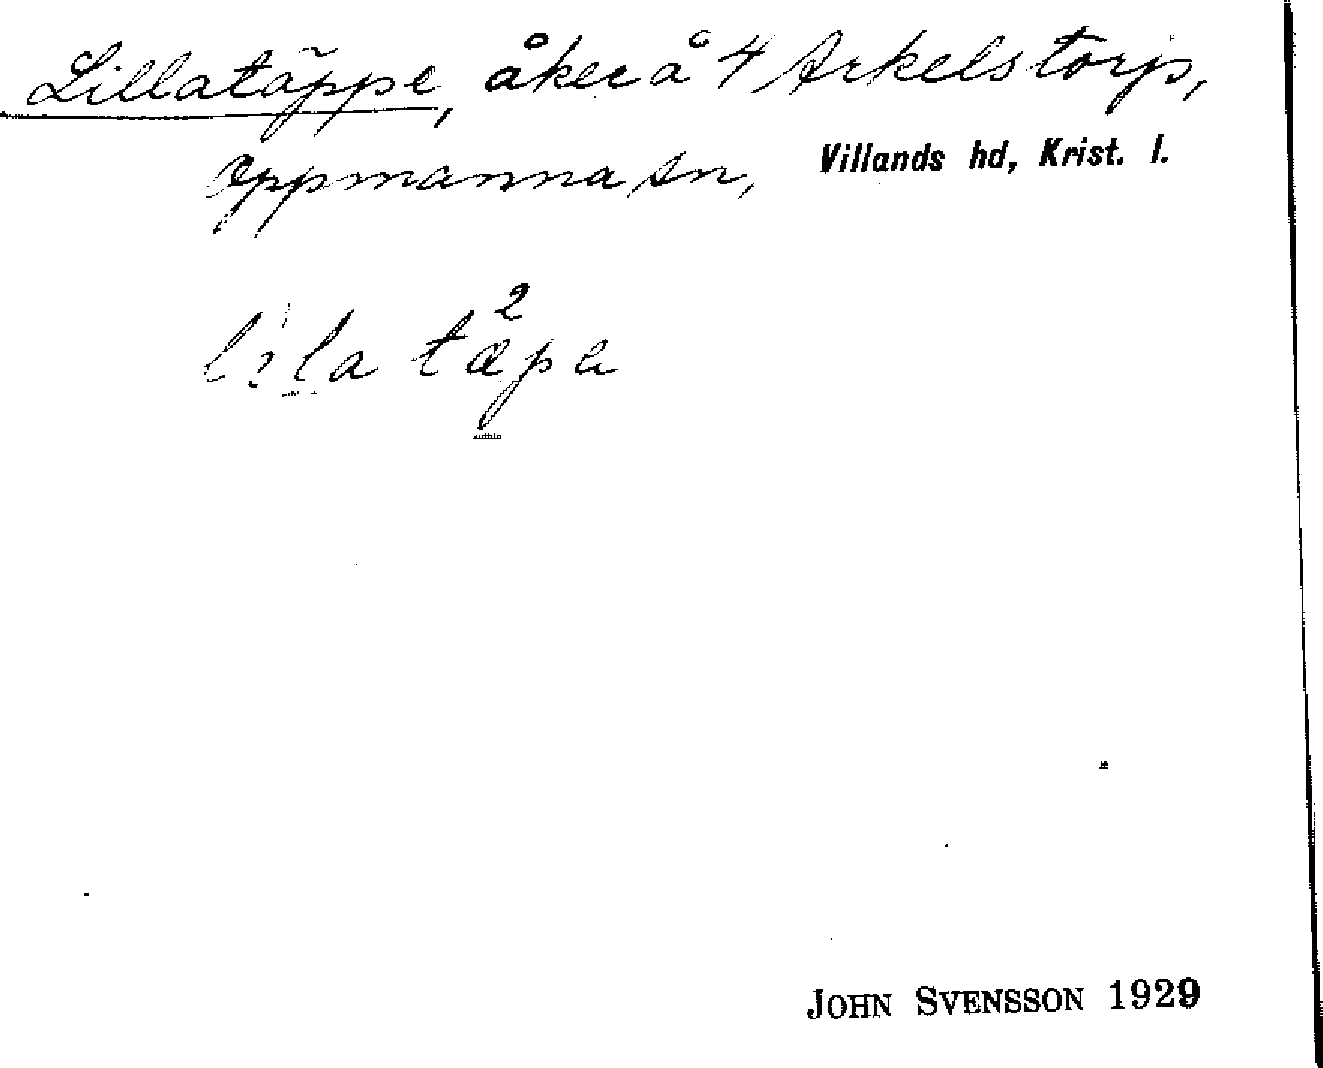 Lillatäppe, åker å 4 Arkelstorp,
Oppmanna sn, Villands hd, Krist. l.
2
lila tæpa
JOHN SVENSSON 1929